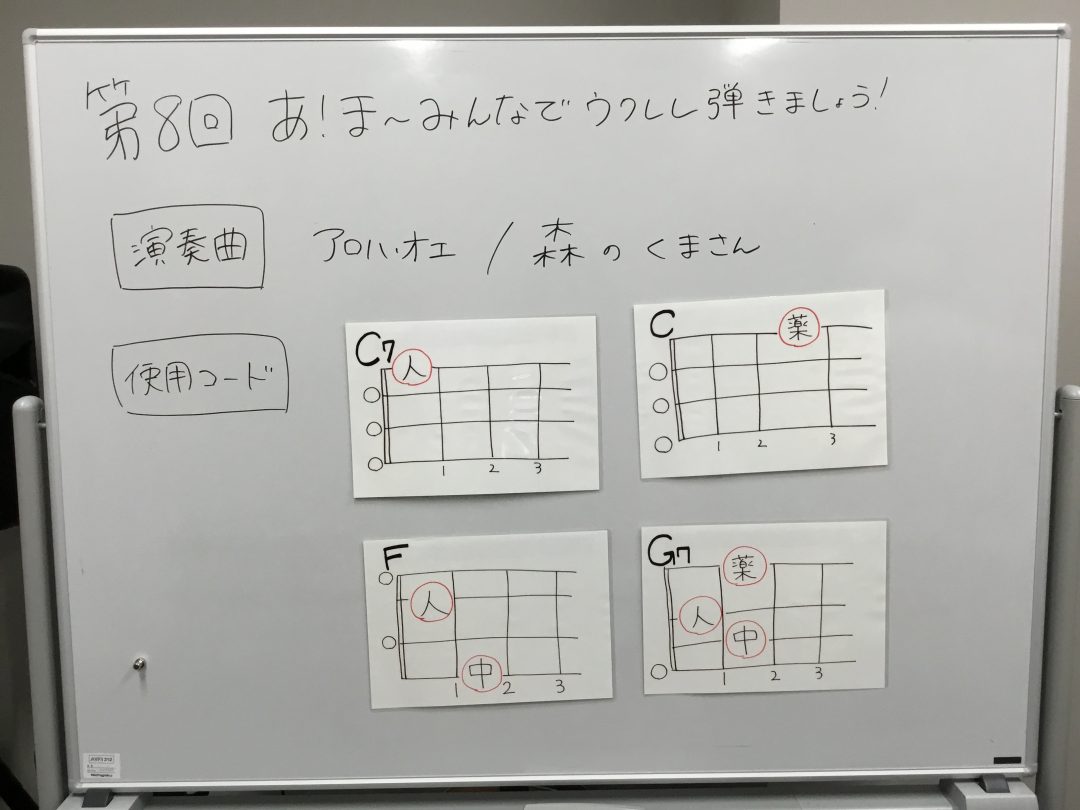 第8回 あ!ま～みんなでウクレレ弾きましょう!
演奏曲 アロハ・オエ / 森のくまさん
使用コード
C7
人
1 2 3
C
薬
1 2 3
F
人
中
1 2 3
G7
薬
人
中
1 2 3